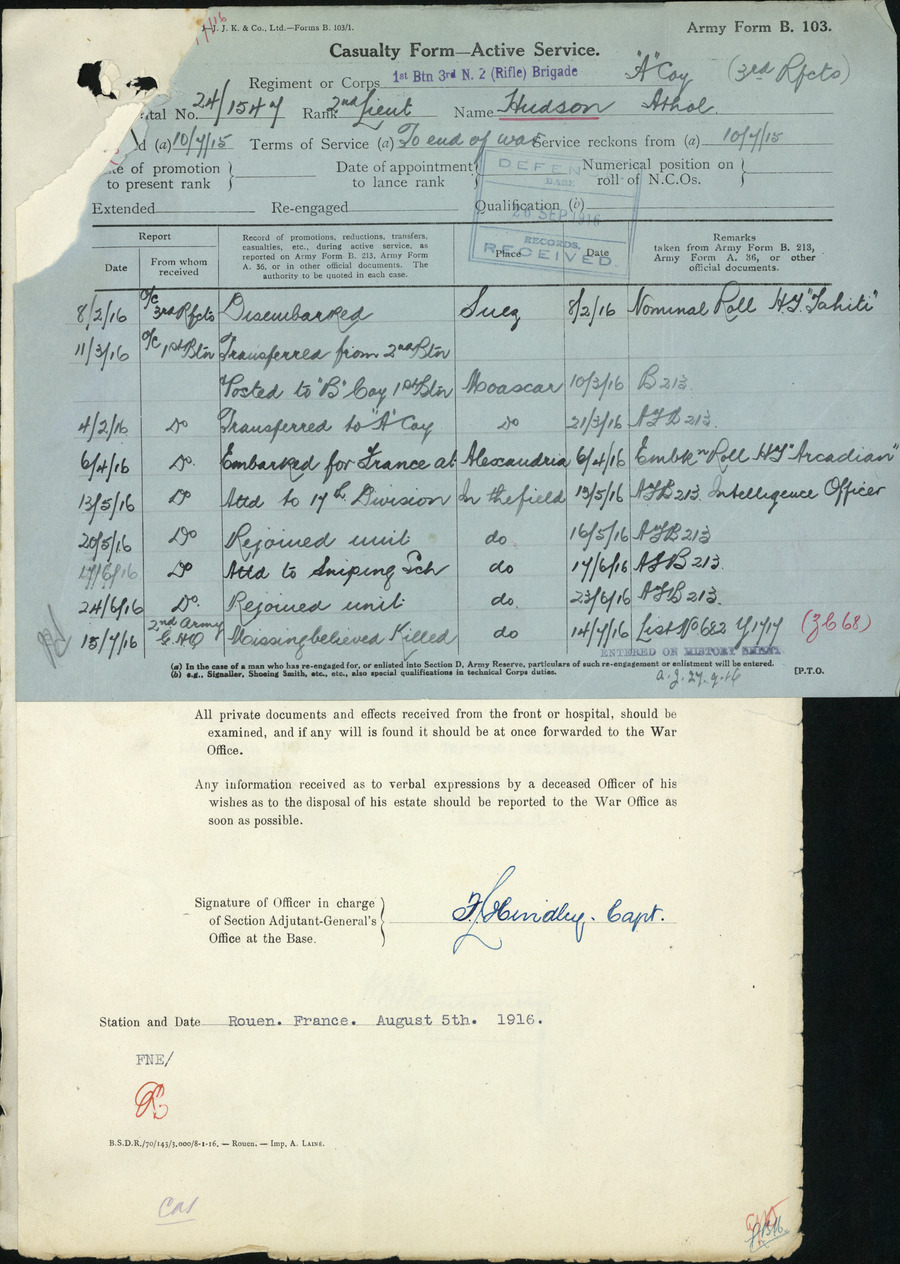 J. J. K. & Co., Ltd.—Forms B. 103/1.
Army Form B. 103.
Casualty Form—Active Service.
Regiment or Corps 1st Btn 3rd N. Z (Rifle) Brigade "A" Coy (3rd Rfcts)
tal No. 24/1547 Rank 2nd Lieut Name Hudson Athol.
d (a) 10/7/15 Terms of Service (a) To end of war Service reckons from (a) 10/7/15
te of promotion to present rank
Date of appointment to lance rank
Numerical position on roll of N.C.Os.
Extended Re-engaged Qualification (b)
DEFEN
BASE
26 SEP 1916
RECORDS.
RECEIVED.
Report
Date
From whom received
Record of promotions, reductions, transfers, casualties, etc., during active service, as reported on Army Form B. 213, Army Form A. 36, or in other official documents. The authority to be quoted in each case.
Place
Date
Remarks taken from Army Form B. 213, Army Form A. 36, or other official documents.
8/2/16 O/C 3rd Rfcts Disembarked Suez 8/2/16 Nominal Roll H.T. "Tahiti"
11/3/16 O/C 1st Btn Transferred from 2nd Btn
Posted to "B" Coy 1st Btn Moascar 10/3/16 B 213.
4/2/16 Do Transferred to "A" Coy Do 21/3/16 AFB 213.
6/4/16 Do. Embarked for France at Alexandria 6/4/16 Embkn Roll HT "Arcadian"
13/5/16 Do Attd to 17th Division In the field 13/5/16 AFB 213. Intelligence Officer
20/5/16 Do Rejoined unit do. 16/5/16 AFB 213
17/6/16 Do Attd to Sniping Sch do 17/6/16 AFB 213.
24/6/16 Do. Rejoined unit do. 23/6/16 AFB 213.
15/7/16 2nd Army G.HQ Missing believed Killed do 14/7/16 List No 682 (ZB 68)
ENTERED ON HISTORY SHEET
27.9.16
(a) In the case of a man who has re-engaged for, or enlisted into Section D, Army Reserve, particulars of such re-engagement or enlistment will be entered.
(b) e.g., Signaller, Shoeing Smith, etc., etc., also special qualifications in technical Corps duties.
[P.T.O.
All private documents and effects received from the front or hospital, should be
examined, and if any will is found it should be at once forwarded to the War
Office.
Any information received as to verbal expressions by a deceased Officer of his
wishes as to the disposal of his estate should be reported to the War Office as
soon as possible.
Signature of Officer in charge
of Section Adjutant-General's
Office at the Base.
F. Hindley. Capt.
Station and Date Rouen. France. August 5th. 1916.
FNE/
B.S.D.R./70/143/3.000/8-1-16. — Rouen. — Imp. A. Lainé.